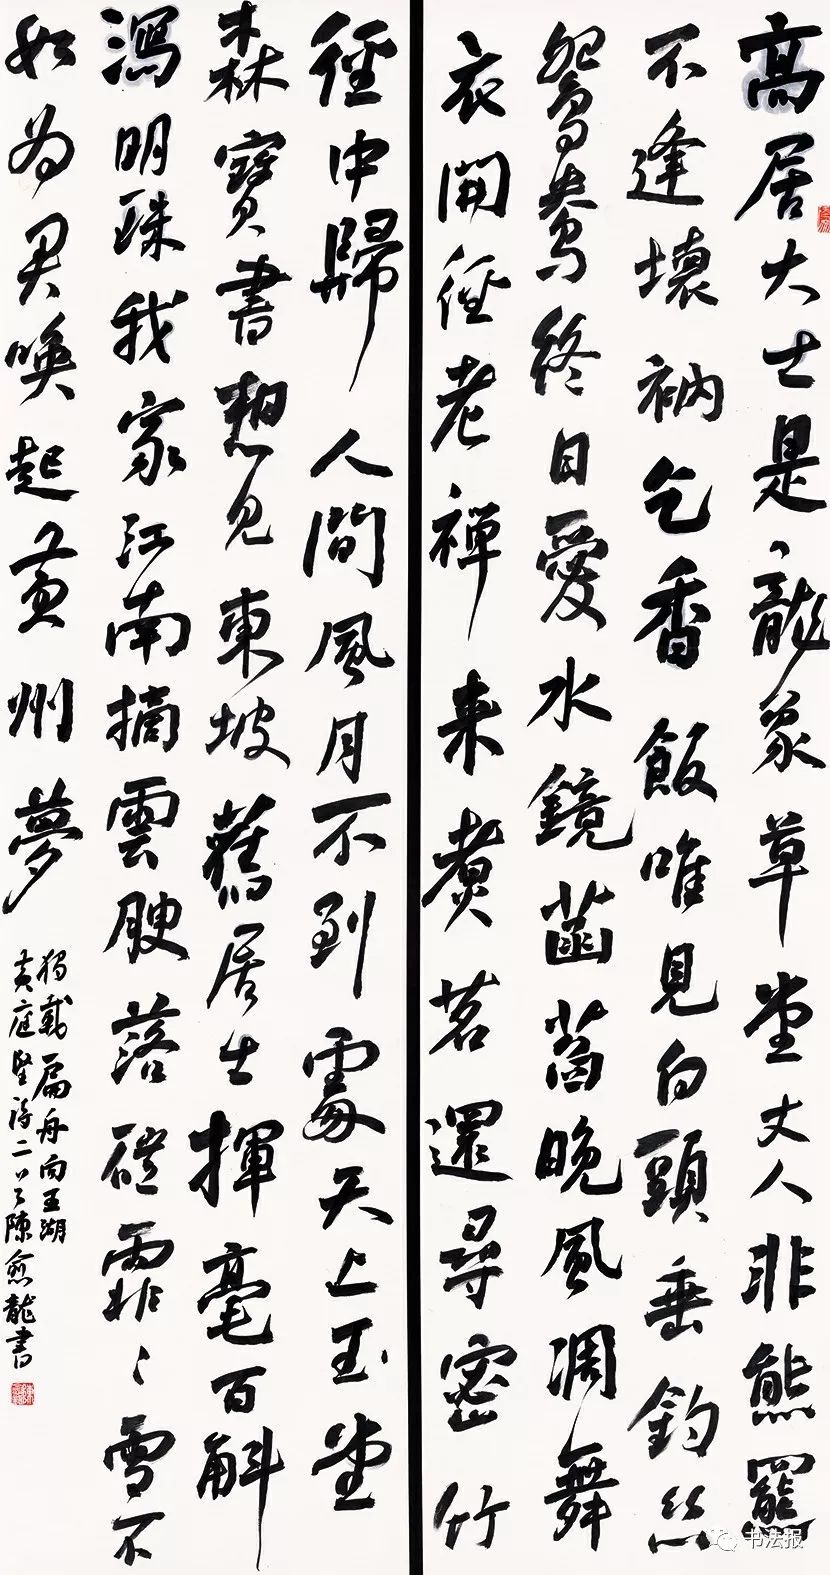 高居大士是龍象草堂丈人非熊羆
不逢壞衲乞香飯唯見白頭垂釣絲
鴛鴦終日愛水鏡菡萏晚風凋舞
衣開徑老禪来煮茗還尋密竹
徑中歸人間風月不到處天上玉堂
森寶書想見東坡舊居士揮毫百斛
瀉明珠我家江南摘雲腴落磑霏〻雪不
如為君喚起黃州夢
獨載扁舟向五湖
黃庭堅詩二首陳龍書
书法报